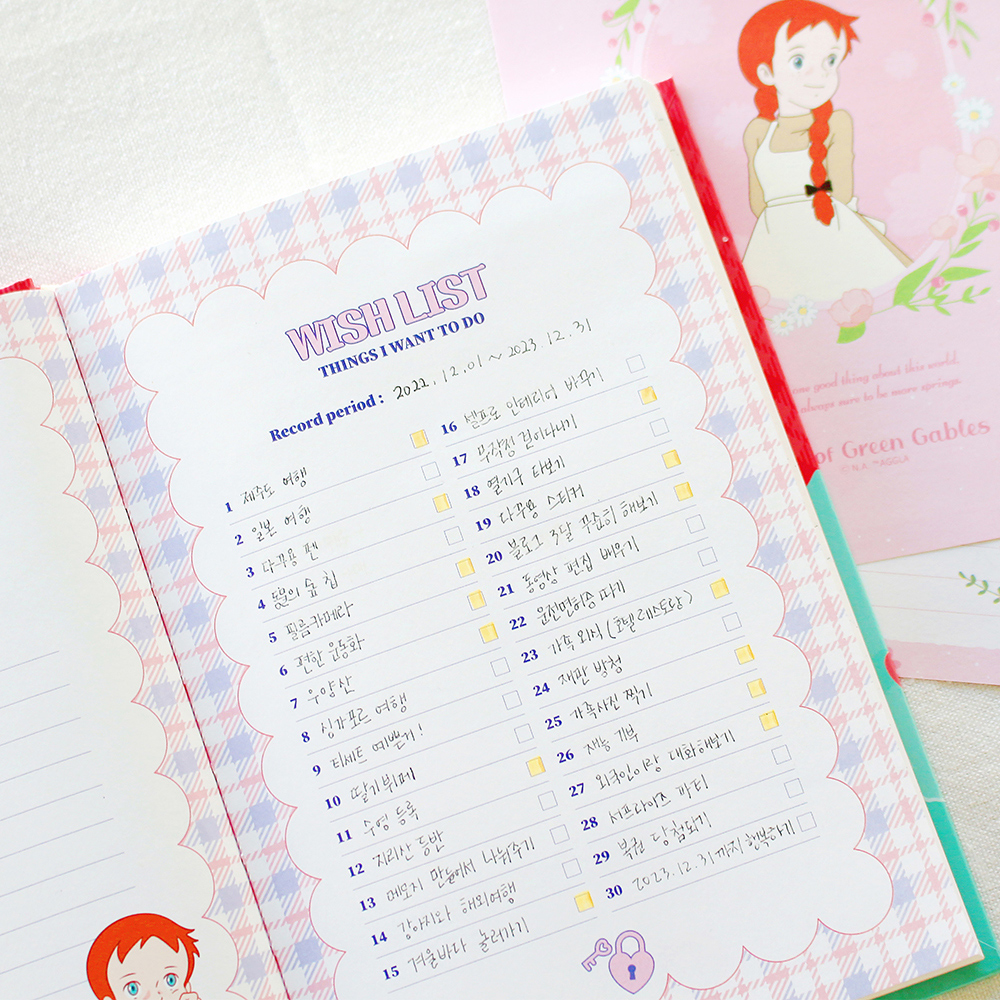 WISH LIST
THINGS I WANT TO DO
Record period : 2022. 12. 01 ~ 2023 12. 31
1 제주도 여행
2 일본 여행
3 다꾸용 펜
4 동물의 숲 칩
5 필름카메라
6 편한 운동화
7 우양산
8 싱가포르 여행
9 티세트 예쁜거!
10 딸기뷔페
11 수영 등록
12 지리산 등반
13 메모지 만들어서 나눠주기
14 강아지와 해외여행
15 겨울바다 놀러가기
16 셀프로 인테리어 바꾸기
17 무작정 걸어다니기
18 열기구 타보기
19 다꾸용 스티커
20 블로그 3달 꾸준히 해보기
21 동영상 편집 배우기
22 운전면허증 따기
23 가족 외식 (호텔 레스토랑)
24 재판 방청
25 가족사진 찍기
26 재능 기부
27 외국인이랑 대화해보기
28 서프라이즈 파티
29 복권 당첨되기
30 2023. 12. 31 까지 행복하기
some good thing about this world,
always more to be more springs.
of Green Gables
© N.A. ™AGGLA